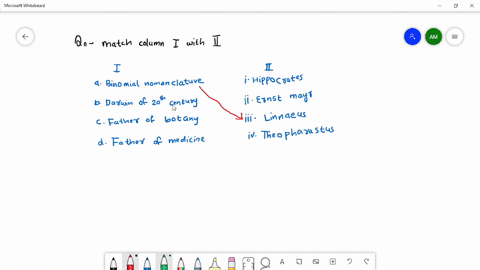 Microsoft Whiteboard
AM
Qn- match column I with II
I
II
a. Binomial nomenclature
i. Hippocrates
b. Darwin of 20th century
ii. Ernst mayr
c. Father of botany
iii. Linnaeus
d. Father of medicine
iv. Theopharastus